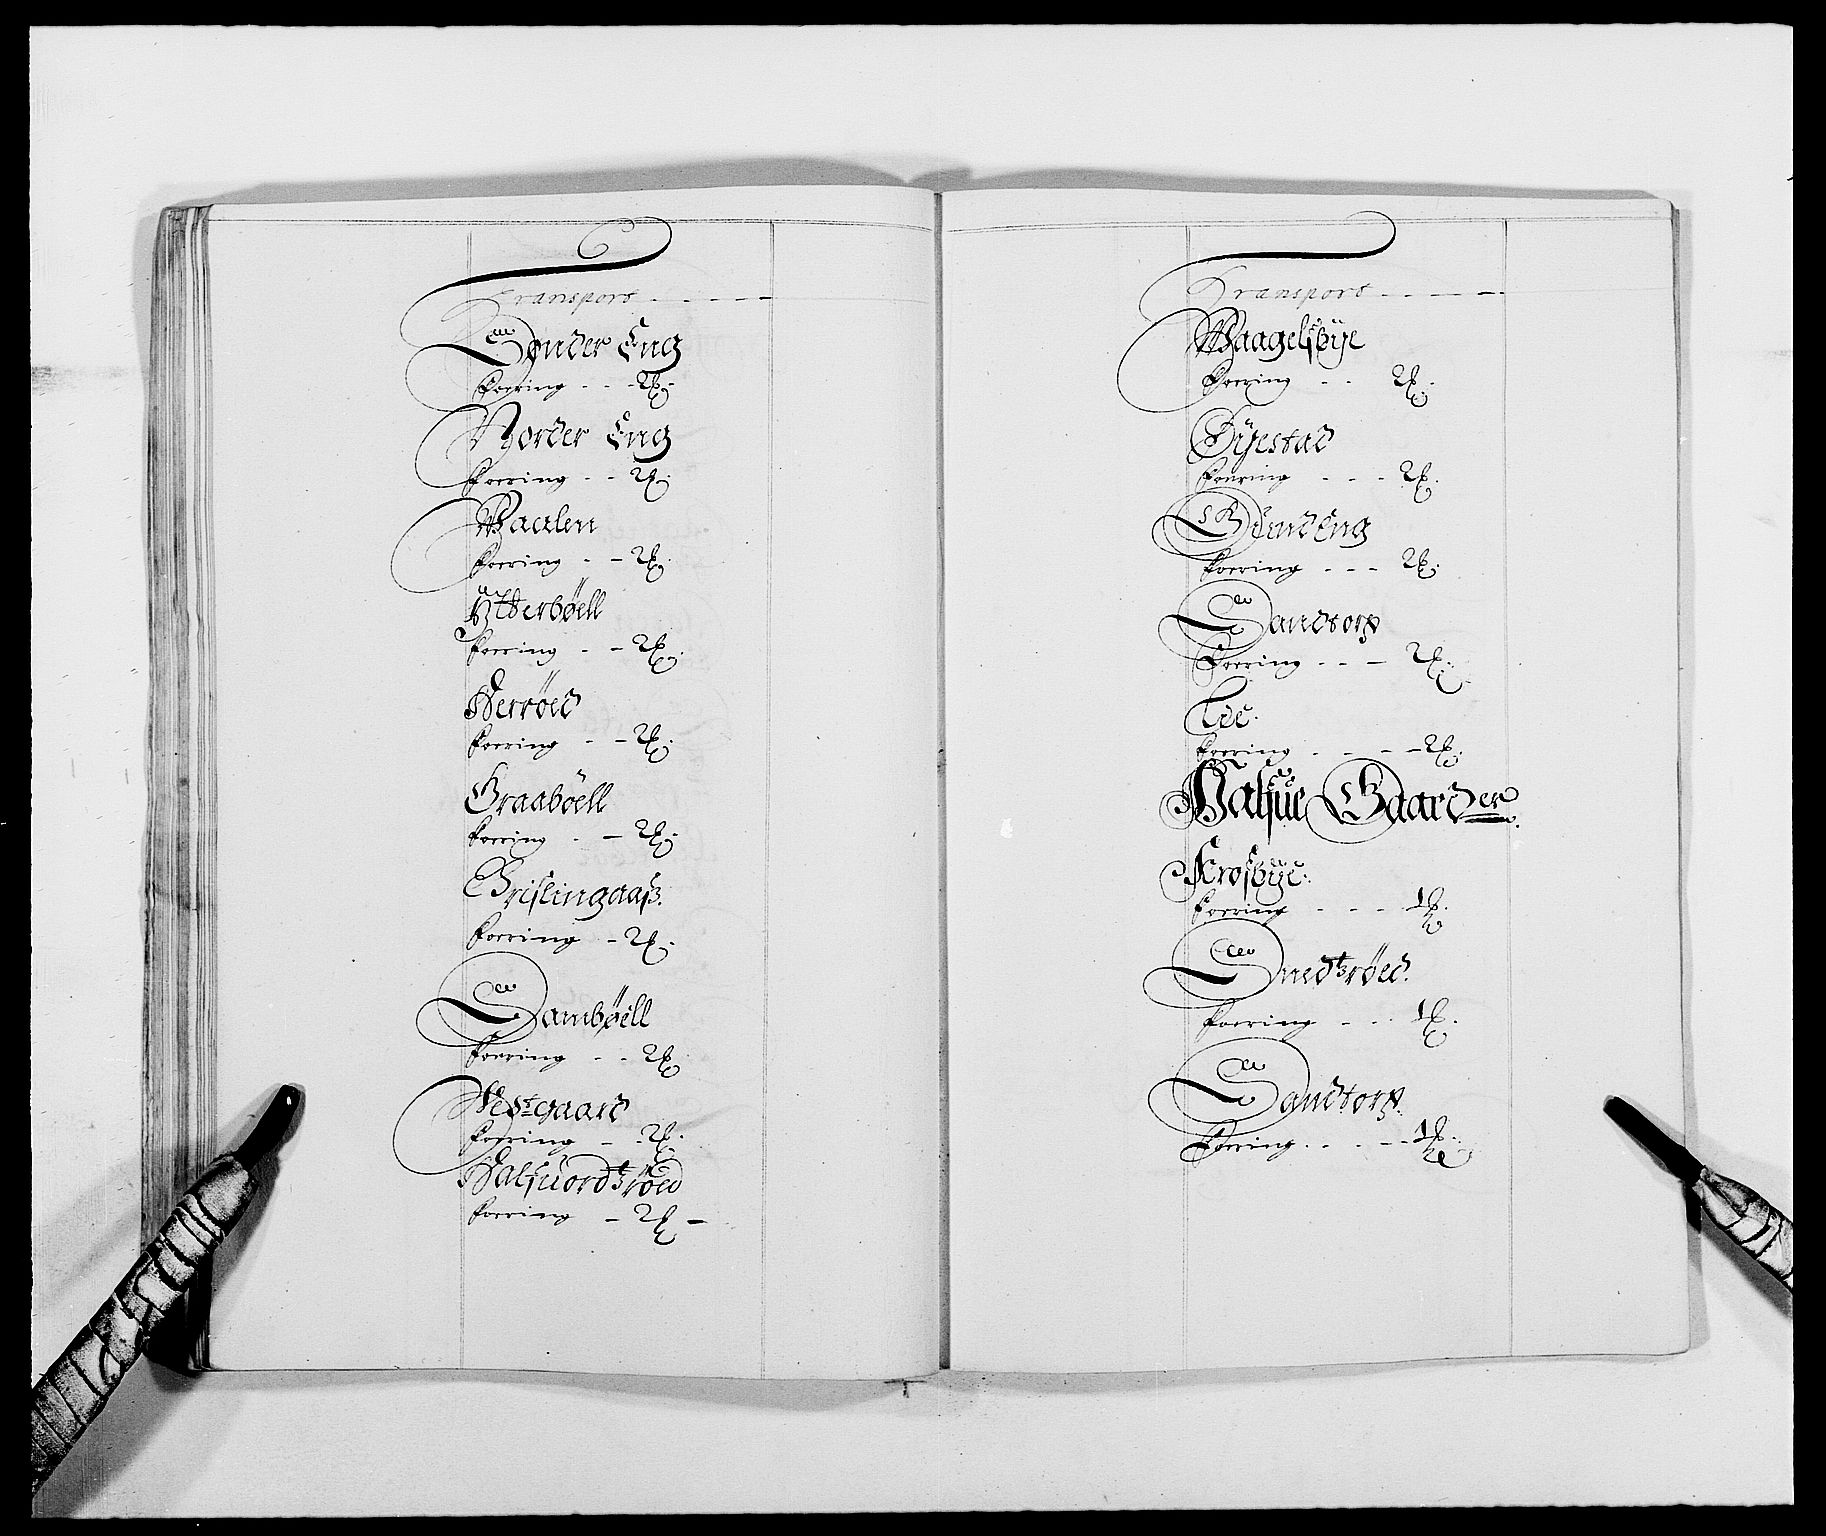 Transport
Sönder Eng
Foering - - - 2 ℔.
Norder Eng
Foering - - 2 ℔.
Waalen
Foering - - 2 ℔.
Ytterböell
Foering - - 2 ℔.
Herröed
Foering - - 2 ℔.
Graaböell
Foering - - 2 ℔.
Grislingaaß.
Foering - 2 ℔.
Samböell
Foering - - 2 ℔.
Westgaard
Foering - - 2 ℔.
Halfuordtzröed
Foering - 2 ℔ -
Transport
Waagelsbye
Foering - - 2 ℔.
Öyestad
Foering - - - 2 ℔.
Grindeng
Foering - - - 2 ℔.
Sandtorp
Foering - - - 2 ℔.
Lie.
Foering - - - - 2 ℔.
Halfue Gaarder.
Krosbye.
Foering - - - 1 ℔.
Smedtzröed.
Foering - - - 1 ℔.
Sandtorp.
Foering - - - - 1 ℔.